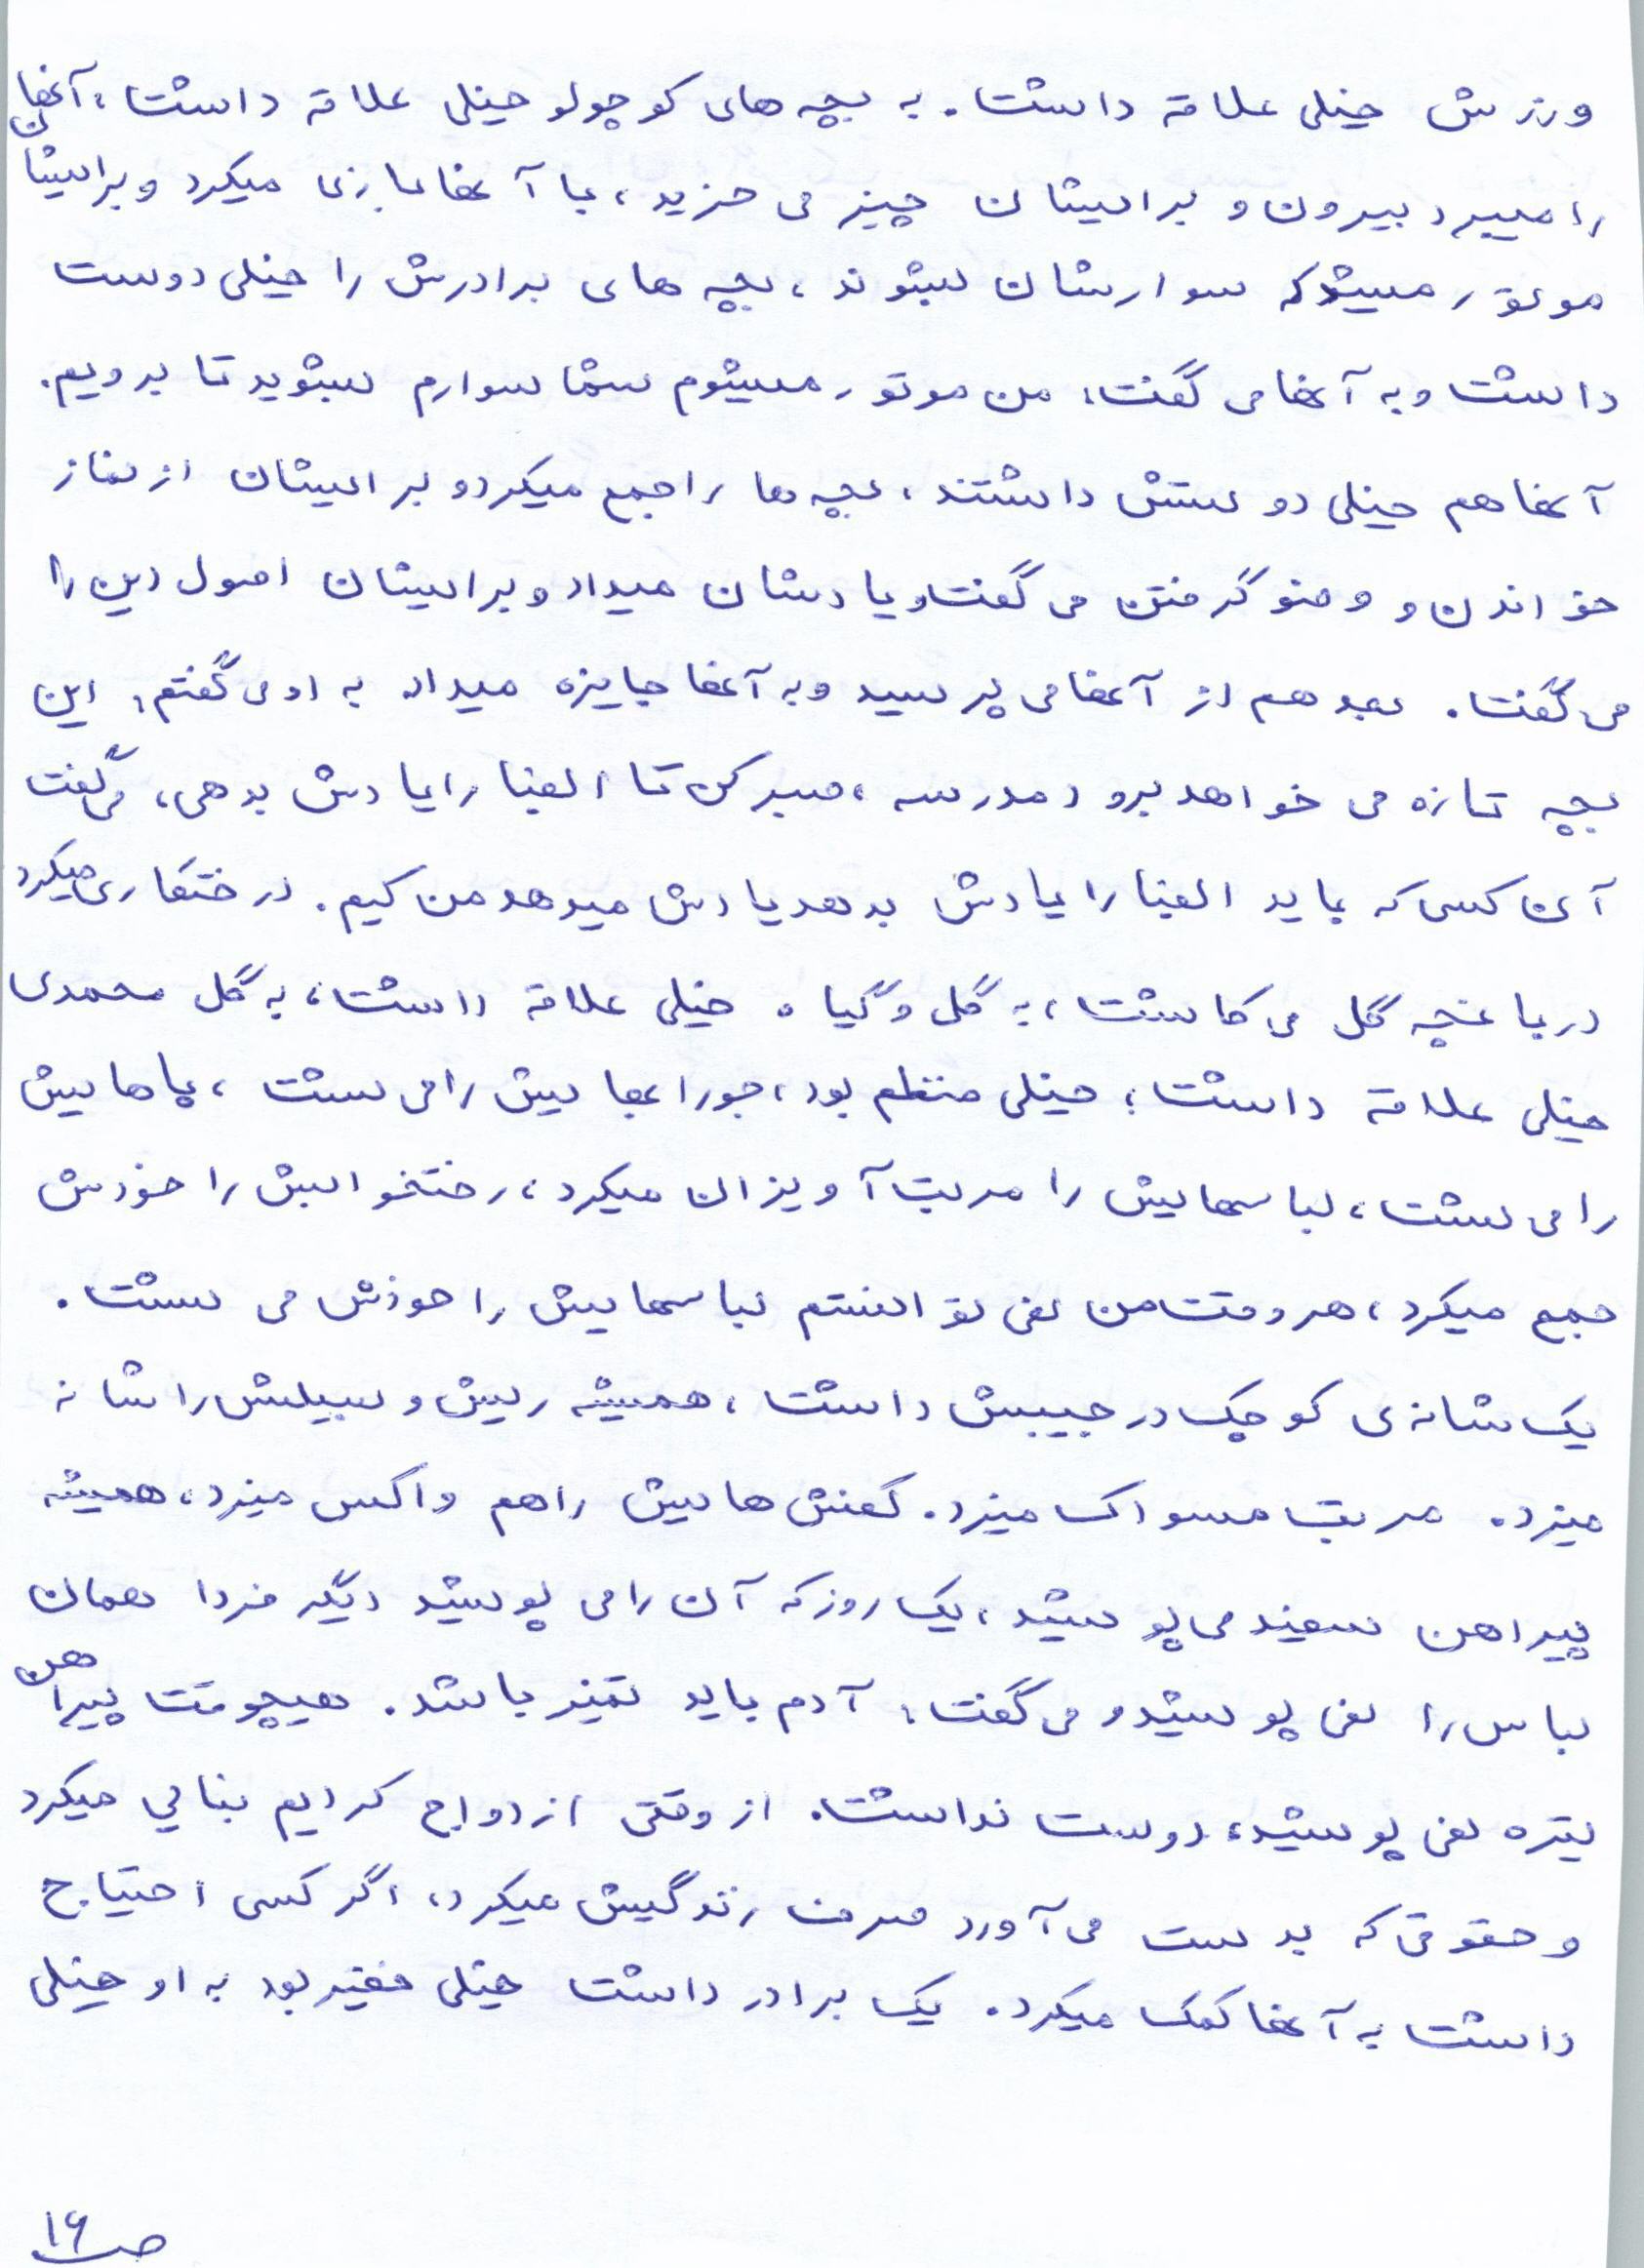 ورزش خیلی علاقه داشت. به بچه های کوچولو خیلی علاقه داشت، آنها
را میبرد بیرون و برایشان چیز می خرید، با آنها بازی میکرد و برایشان
موتور میشد که سوارشان بشوند، بچه های برادرش را خیلی دوست
داشت و به آنها می گفت: من موتور میشوم شما سوارم بشوید تا برویم.
آنها هم خیلی دوستش داشتند، بچه ها را جمع میکرد و برایشان از نماز
خواندن و وضو گرفتن می گفت و یادشان میداد و برایشان اصول دین را
می گفت. بعد هم از آنها می پرسید و به آنها جایزه میداد به او می گفتم: این
بچه تازه می خواهد برود مدرسه، صبر کن تا الفبا را یادش بدهی، می گفت
آن کسی که باید الفبا را یادش بدهد یادش میدهد من کیم. درختکاری میکرد
در باغچه گل می کاشت، به گل و گیاه خیلی علاقه داشت، به گل محمدی
خیلی علاقه داشت؛ خیلی منظم بود، جورابهایش را می شست، پاهایش
را می شست، لباسهایش را مرتب آویزان میکرد، رختخوابش را خودش
جمع میکرد، هر وقت من نمی توانستم لباسهایش را خودش می شست.
یک شانه ی کوچک در جیبش داشت، همیشه ریش و سبیلش را شانه
میزد. مرتب مسواک میزد. کفش هایش را هم واکس میزد، همیشه
پیراهن سفید می پوشید، یک روز که آن را می پوشید دیگر فردا همان
لباس را نمی پوشید و می گفت: آدم باید تمیز باشد. هیچوقت پیراهن
تیره نمی پوشید، دوست نداشت. از وقتی ازدواج کردیم بنایی میکرد
و حقوقی که بدست می آورد صرف زندگیش میکرد، اگر کسی احتیاج
داشت به آنها کمک میکرد. یک برادر داشت خیلی فقیر بود به او خیلی
ص ۱۶